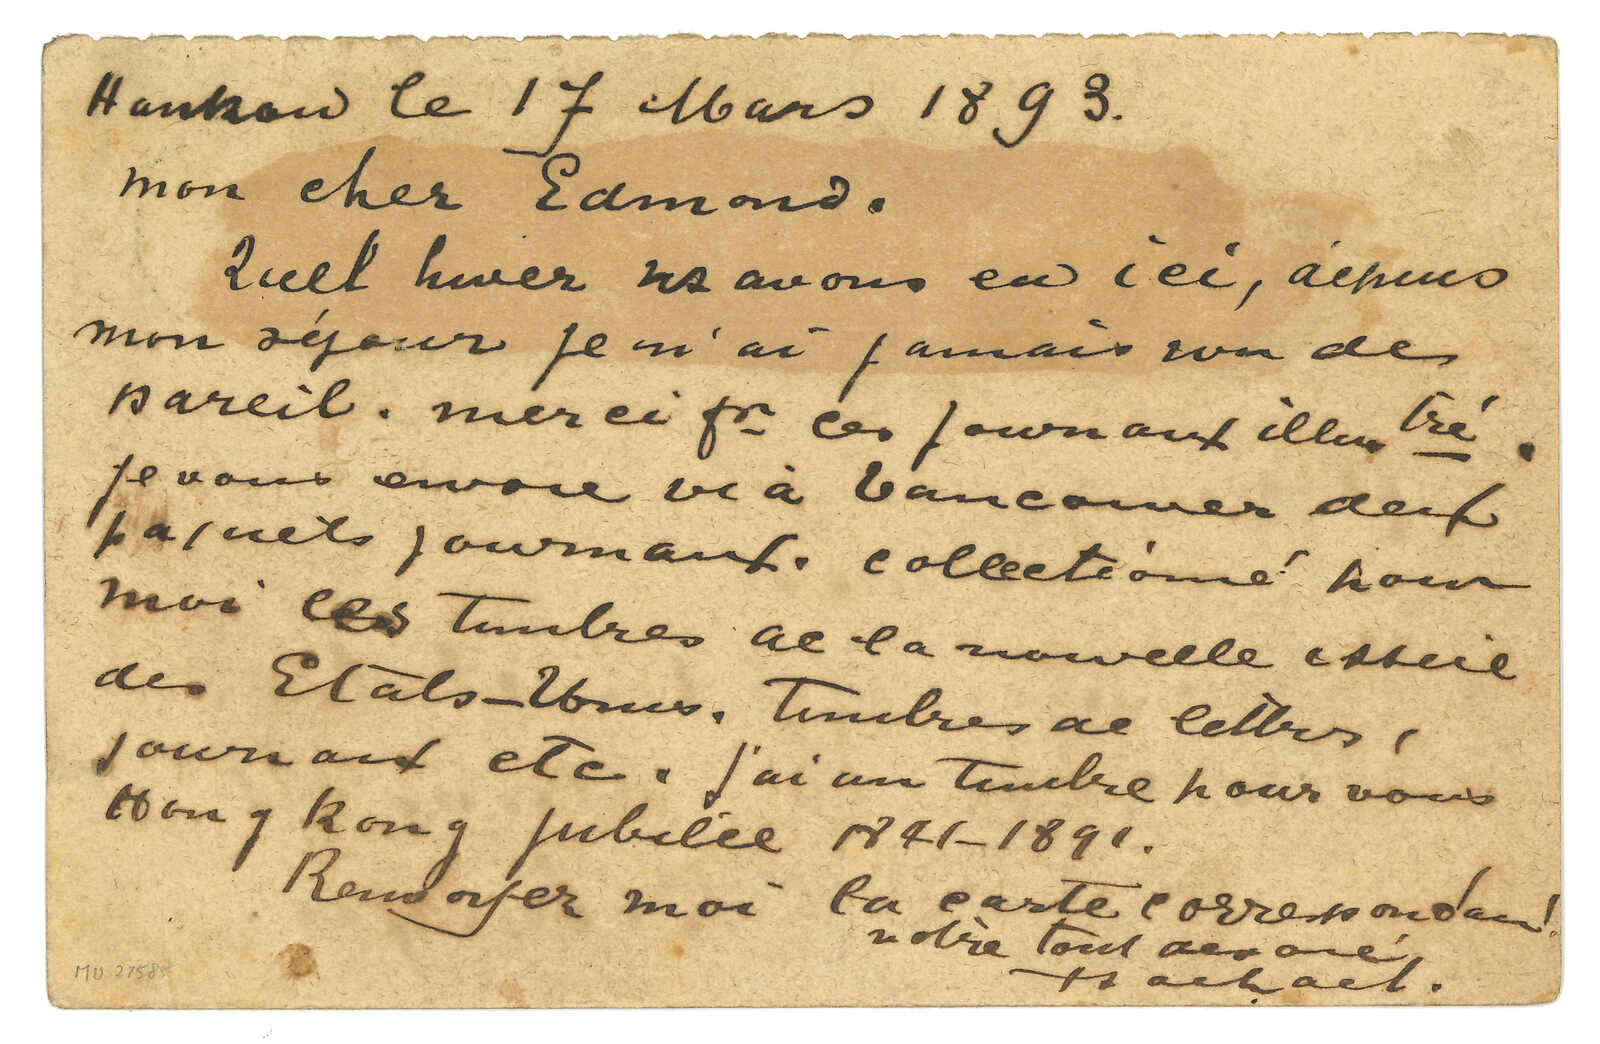 Hankow le 17 Mars 1893.
mon cher Edmond.
Quel hiver ns avons eu ici, depuis
mon séjour je n'ai jamais vu des
pareil. merci pr ces journaux illustré.
je vous envoie via Vancouver deux
paquets journaux. collectionné pour
moi les timbres de la nouvelle
des Etats-Unis. Timbres de lettres,
journaux etc. j'ai un timbre pour vous
Hong Kong jubilée 1841-1891.
Renvoyer moi la carte correspondant!
votre tout devoué
MU 27585